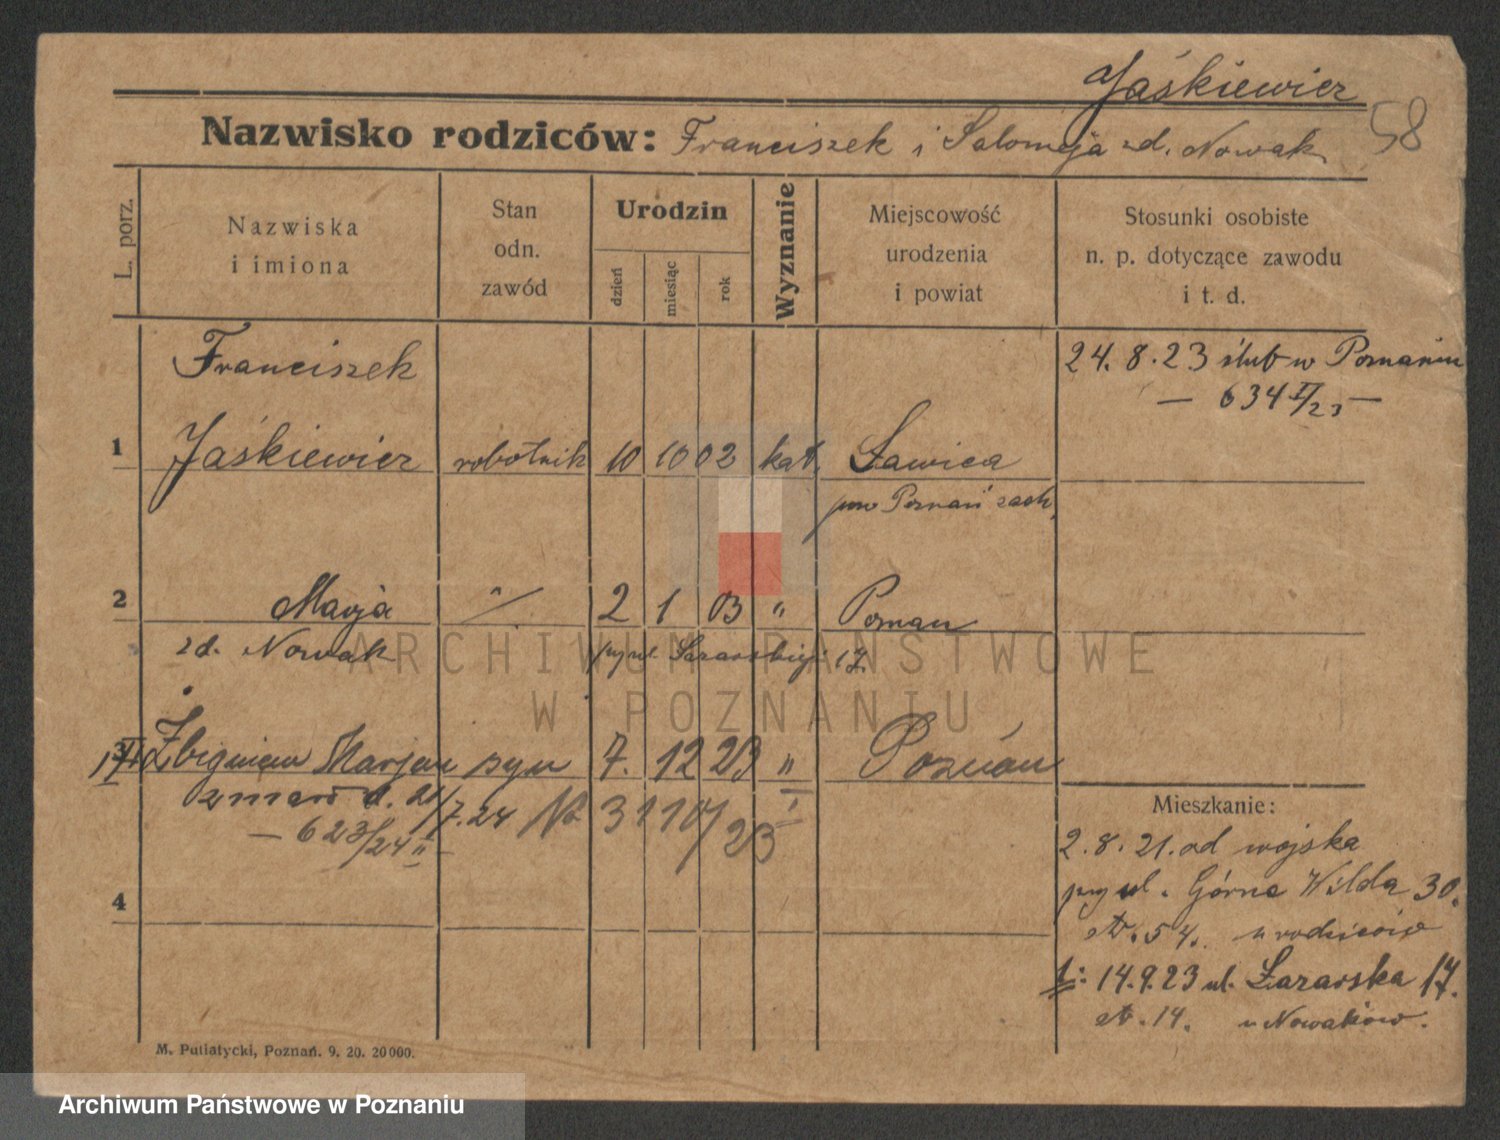 Jaśkiewicz
58
Nazwisko rodziców: Franciszek i Salomeja zd. Nowak
L. porz.
Nazwiska
i imiona
Stan
odn.
zawód
Urodzin
dzień
miesiąc
rok
Wyznanie
Miejscowość
urodzenia
i powiat
Stosunki osobiste
n. p. dotyczące zawodu
i t. d.
Franciszek
24. 8. 23 ślub w Poznaniu
— 634 I/23 —
1 Jaśkiewicz robotnik 10 10 02 kat. Ławica
pow Poznań zach.
2 Marja 2 1 03 " Poznań
zd. Nowak przy ul. Łazarskiej 17.
3 Zbigniew Marjan syn 7. 12 23 " Poznań
zmarł d. 21/7.24 No 3110/23 I
— 623/24 II —
4
Mieszkanie:
2. 8. 21. od wojska
przy ul. Górna Wilda 30.
st. 54. u rodziców
1: 14.9.23 ul. Łazarska 17.
st. 14. u Nowaków.
M. Putiatycki, Poznań. 9. 20. 20000.
ARCHIWUM PAŃSTWOWE
W POZNANIU
Archiwum Państwowe w Poznaniu